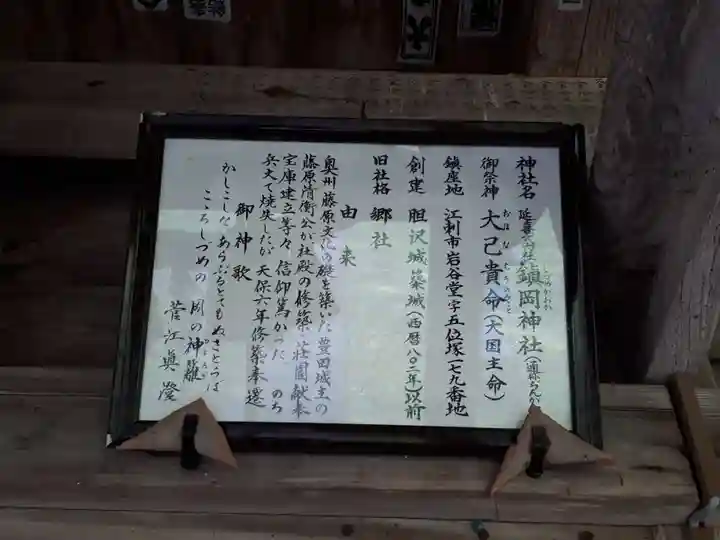 神社名 延喜式内社 鎮岡神社(通称ちんか
しづめがおか
御祭神 大己貴命(大国主命)
おほなむちのみこと
鎮座地 江刺市岩谷堂字五位塚(七九番地
創建 胆沢城築城(西暦八〇二年)以前
旧社格 郷社
由来
奥州藤原文化の礎を築いた豊田城主の
藤原清衡公が社殿の修築、荘園献奉
宝庫建立等々 信仰篤かった のち
兵火で焼失したが天保六年修築奉還
御神歌
かしこしなあらぶるともぬさとらは
こゝろしづめの 岡の神籬
菅江眞澄